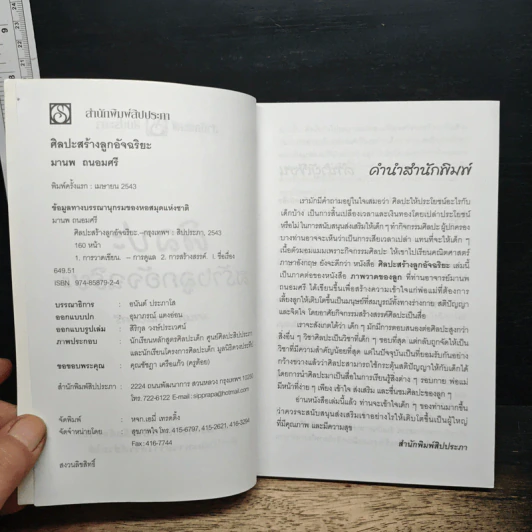 สำนักพิมพ์สิปประภา
ศิลปะสร้างลูกอัจฉริยะ
มานพ ถนอมศรี
พิมพ์ครั้งแรก : เมษายน 2543
ข้อมูลทางบรรณานุกรมของหอสมุดแห่งชาติ
มานพ ถนอมศรี
ศิลปะสร้างลูกอัจฉริยะ.--กรุงเทพฯ : สิปประภา, 2543
160 หน้า
1. การวาดเขียน. -- การดูแล 2. การสร้างสรรค์. I ชื่อเรื่อง
649.51
ISBN 974-85879-2-4
บรรณาธิการ : อนันต์ ประภาโส
ออกแบบปก : อุมาภรณ์
ออกแบบรูปเล่ม : สิริกุล วงษ์ประเวศน์
ภาพประกอบ : นักเรียนหลักสูตรศิลปะเด็ก ศูนย์ศิลปะสิปประภา
และนักเรียนโครงการศิลปะเด็ก
ขอขอบพระคุณ : คุณชัชฎา เครือแก้ว (ครูต้อย)
สำนักพิมพ์สิปประภา : 2224 ถนนพัฒนาการ สวนหลวง กรุงเทพฯ
โทร. 722-6122 E-mail : sippnapa@hotmail.com
จัดพิมพ์ : หจก.เอมี่ เทรดดิ้ง
จัดจำหน่ายโดย : สุขภาพใจ โทร.415-6797, 415-2621, 416-3294
Fax : 416-7744
สงวนลิขสิทธิ์
คำนำสำนักพิมพ์
เรามักมีคำถามอยู่ในใจเสมอว่า ศิลปะให้ประโยชน์อะไรกับ
เด็กบ้าง เป็นการสิ้นเปลืองเวลาและเงินทองโดยเปล่าประโยชน์
หรือไม่ ในการสนับสนุนส่งเสริมให้เด็ก ๆ ทำกิจกรรมศิลปะ ผู้ปกครอง
บางท่านอาจจะเห็นว่าเป็นการเสียเวลาเปล่า แทนที่จะให้เด็ก ๆ
เนื้อตัวมอมแมมเพราะกิจกรรมศิลปะ ให้เขาไปเรียนคณิตศาสตร์
ภาษาอังกฤษ ยังจะดีกว่า หนังสือ ศิลปะสร้างลูกอัจฉริยะ เล่มนี้
เป็นภาคต่อของหนังสือ ภาพวาดของลูก ที่ท่านอาจารย์มานพ
ถนอมศรี ได้เขียนขึ้นเพื่อสร้างความเข้าใจแก่พ่อแม่ที่ต้องการ
เลี้ยงลูกให้เติบโตขึ้นเป็นมนุษย์ที่สมบูรณ์ทั้งทางร่างกาย สติปัญญา
และจิตใจ โดยอาศัยกิจกรรมสร้างสรรค์ศิลปะเป็นสื่อ
เราจะสังเกตได้ว่า เด็ก ๆ มักมีการตอบสนองต่อศิลปะสูงกว่า
สิ่งอื่น ๆ วิชาศิลปะเป็นวิชาที่เด็ก ๆ ชอบที่สุด แต่กลับถูกจัดให้เป็น
วิชาที่มีความสำคัญน้อยที่สุด แต่ในปัจจุบันเป็นที่ยอมรับกันอย่าง
กว้างขวางแล้วว่าศิลปะสามารถใช้กระตุ้นสติปัญญาให้กับเด็กได้
โดยการนำศิลปะมาเป็นสื่อในการเรียนรู้สิ่งต่าง ๆ รอบกาย พ่อแม่
มีหน้าที่ง่าย ๆ เพียง เข้าใจ ส่งเสริม และชื่นชมศิลปะของลูก ๆ
อ่านหนังสือเล่มนี้แล้ว ท่านจะเข้าใจเด็ก ๆ ของท่านมากขึ้น
ว่าควรจะสนับสนุนส่งเสริมเขาอย่างไรให้เติบโตขึ้นเป็นผู้ใหญ่
ที่มีคุณภาพ และมีความสุข
สำนักพิมพ์สิปประภา